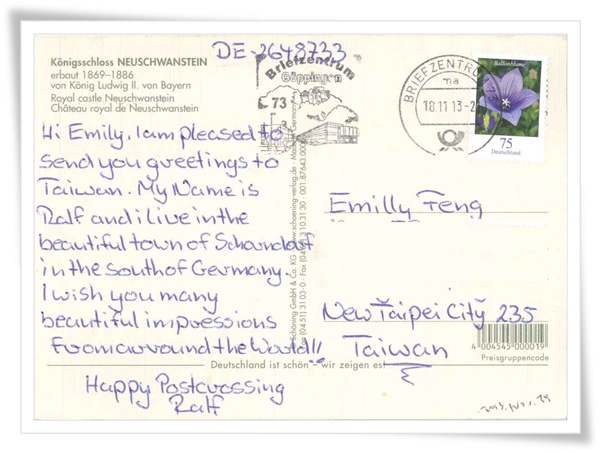 DE-2648733
Königsschloss NEUSCHWANSTEIN
erbaut 1869–1886
von König Ludwig II. von Bayern
Royal castle Neuschwanstein
Château royal de Neuschwanstein
Briefzentrum
Göppingen
73
BRIEFZENTRUM
ma
18.11.13-2
Ballonblume
75
Deutschland
Hi Emily, I am pleased to
send you greetings to
Taiwan. My Name is
Ralf and i live in the
beautiful town of Schorndorf
in the south of Germany.
I wish you many
beautiful impressions
From arround the World!!
Happy Postcrossing
Ralf
Schöning GmbH & Co. KG
www.schoening-verlag.de
Emilly Feng
New Taipei City 235
Taiwan
4 004545 000019
Preisgruppencode
Deutschland ist schön – wir zeigen es